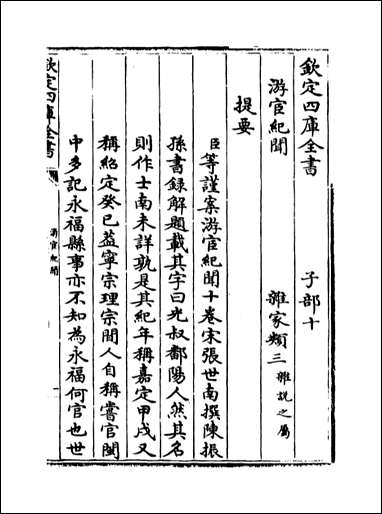 欽定四庫全書　子部十
游宦紀聞　雜家類三雜說之屬
提要
臣等謹案游宦紀聞十卷宋張世南撰陳振
孫書録解題載其字曰光叔鄱陽人然其名
則作士南未詳孰是其紀年稱嘉定甲戌又
稱紹定癸巳葢寧宗理宗間人自稱嘗官閩
中多記永福縣事亦不知為永福何官也世
欽定四庫全書
游宦紀聞
一